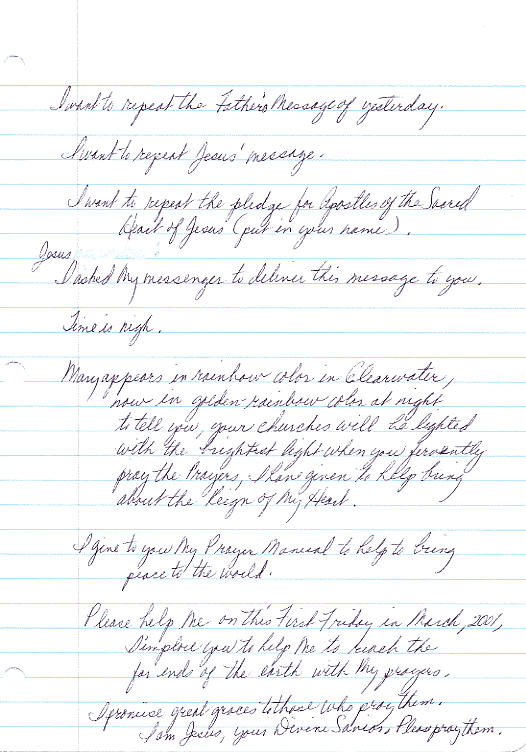 I want to repeat the Father's Message of yesterday.
I want to repeat Jesus' message.
I want to repeat the pledge for Apostles of the Sacred
Heart of Jesus (put in your name).
Jesus
I asked My messenger to deliver this message to you.
Time is nigh.
Mary appears in rainbow color in Clearwater,
now in golden rainbow color at night
to tell you, your churches will be lighted
with the brightest light when you fervently
pray the Prayers, I have given to help bring
about the Reign of My Heart.
I give to you My Prayer Manual to help to bring
peace to the world.
Please help Me on this First Friday in March, 2001,
I implore you to help Me to reach the
far ends of the earth with My prayers.
I promise great graces to those who pray them.
I am Jesus, your Divine Savior, Please pray them.